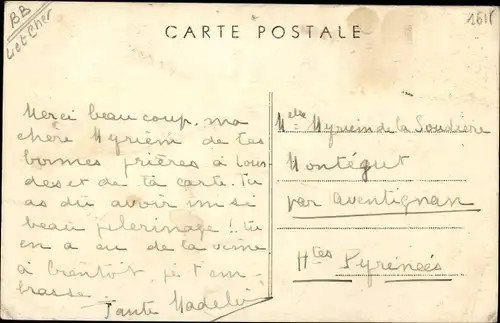 BB
Loir et Cher
CARTE POSTALE
1618
Merci beau coup, ma
chère Myriem de tes
bonnes prières à Lour
des et de ta carte. Tu
as du avoir un si
beau pelerinage !! tu
en a eu de la veine
à bientôt je t'em-
brasse
Tante Madele
Melle Myriem de la Soudière
Montégut
par Aventignan
Htes Pyrénées